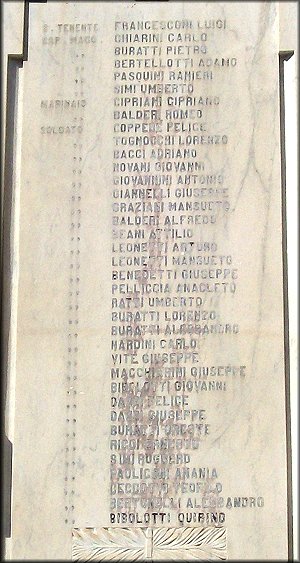 S. TENENTE FRANCESCONI LUIGI
CAP. MAGG. GHIARINI CARLO
" BURATTI PIETRO
" BERTELLOTTI ADAMO
" PASQUINI RANIERI
" SIMI UMBERTO
MARINAIO CIPRIANI CIPRIANO
" BALDERI ROMEO
SOLDATO COPPEDE FELICE
" TOGNOCCHI LORENZO
" BACCI ADRIANO
" NOVANI GIOVANNI
" GIOVANNINI ANTONIO
" GIANNELLI GIUSEPPE
" GRAZIANI MANSUETO
" BALDERI ALFREDO
" BEANI ATTILIO
" LEONETTI ARTURO
" LEONETTI MANSUETO
" BENEDETTI GIUSEPPE
" PELLICCIA ANACLETO
" RATTI UMBERTO
" BURATTI LORENZO
" BURATTI ALESSANDRO
" NARDINI CARLO
" VITE GIUSEPPE
" MACCHIARINI GIUSEPPE
" BIBOLOTTI GIOVANNI
" FELICE
" GIUSEPPE
" BURATTI ORESTE
" ERNESTO
" SIMI RUGGERO
" PAOLICCHI ANANIA
" TEOFILO
" BERTONELLI ALESSANDRO
" BIBOLOTTI QUIRINO